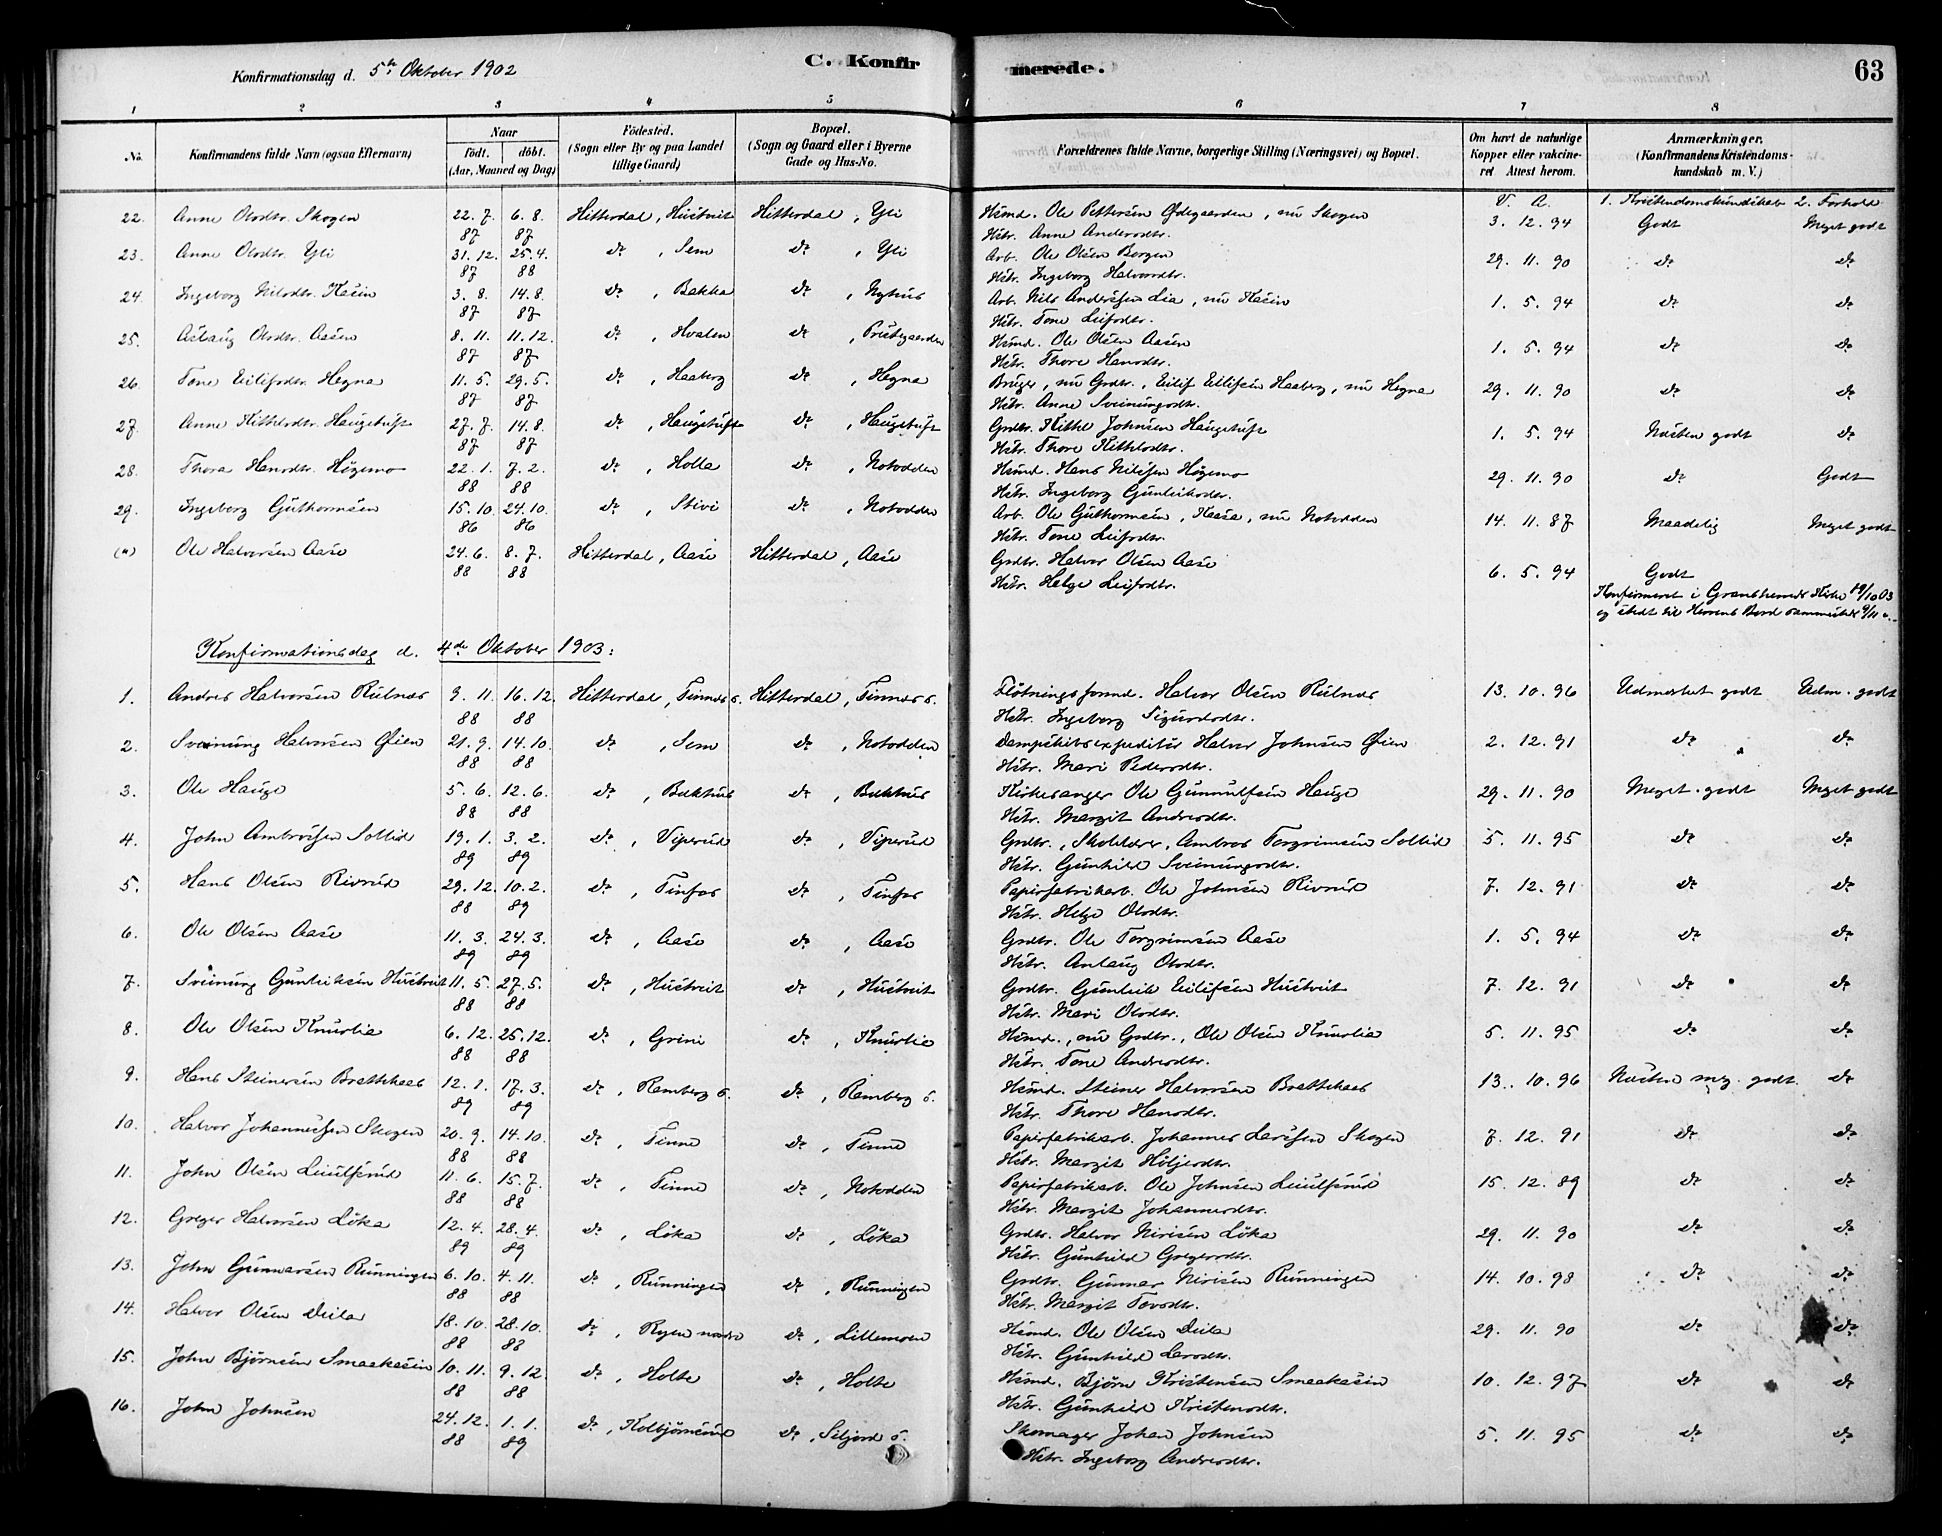 Konfirmationsdag d. 5te Oktober 1902
C. Konfirmerede.
63
1 2 3 4 5 6 7 8
No. Konfirmandens fulde Navn (ogsaa Efternavn) Naar født. døbt. (Aar, Maaned og Dag) Födested. (Sogn eller By og paa Landet tillige Gaard) Bopæl. (Sogn og Gaard eller i Byerne Gade og Hus-No. Forældrenes fulde Navne, borgerlige Stilling (Næringsvei) og Bopæl. Om havt de naturlige Kopper eller vakcineret Attest herom. Anmærkninger. (Konfirmandens Kristendomskundskab m. V.)
V. A. 1. Kristendomskundskab 2. Forhold
22. Anne Olsdtr. Skogen 22. 7. 87 6. 8. 87 Hitterdal, Hustveit Hitterdal, Yli Husmd. Ole Pettersen Ødegaarden, nu Skogen 3. 12. 94 Godt Meget godt
Hstr. Anne Andersdtr.
23. Anne Olsdtr. Yli 31. 12. 87 25. 4. 88 do, Sem do, Yli Arb. Ole Olsen Borgen 29. 11. 90 do do
Hstr. Ingeborg Halvorsdtr.
24. Ingeborg Nilsdtr. Kasin 3. 8. 87 14. 8. 87 do, Bakka do, Nyhus Arb. Nils Andersen Lia, nu Kasin 1. 5. 94 do do
Hstr. Tone Leifsdtr.
25. Aslaug Olsdtr. Aasen 8. 11. 87 11. 12. 87 do, Hvalen do, Prestegaarden Husmd. Ole Olsen Aasen 1. 5. 94 do do
Hstr. Thore Hansdtr.
26. Tone Eilifsdtr. Hegna 11. 5. 87 29. 5. 87 do, Haaberg do, Hegna Bruger, nu Grdbr., Eilif Eilifsen Haaberg, nu Hegna 29. 11. 90 do do
Hstr. Anne Sveinungsdtr.
27. Anne Kittilsdtr. Haugetuft 27. 7. 87 14. 8. 87 do, Haugetuft do, Haugetuft Grdbr. Kittil Johnsen Haugetuft 1. 5. 94 Næsten godt do
Hstr. Thore Kittilsdtr.
28. Thora Hansdtr. Høgemo 22. 1. 88 7. 2. 88 do, Holla do, Notodden Husmd. Hans Nilsen Høgemo 29. 11. 90 do Godt
Hstr. Ingeborg Gunleiksdtr.
29. Ingeborg Guthormsen 15. 10. 86 24. 10. 86 do, Stivi do, Notodden Arb. Ole Guthormsen, Kaasa, nu Notodden 14. 11. 87 Maadelig Meget godt
Hstr. Tone Leifsdtr.
Ole Halvorsen Aase 24. 6. 88 8. 7. 88 Hitterdal, Aase Hitterdal, Aase Grdbr. Halvor Olsen Aase 6. 5. 94 Godt
Hstr. Helge Leifsdtr.
Konfirmeret i Gransherred Kirke 19/10 03
og stedt til Herrens Bord sammesteds 9/11
Konfirmationsdag d. 4de Oktober 1903:
1. Andres Halvorsen Rulnes 9. 11. 88 16. 12. 88 Hitterdal, Tinnes s. Hitterdal, Tinnes s. Fløtningsformd. Halvor Olsen Rulnes 13. 10. 96 Udmerket godt Udm. godt
Hstr. Ingeborg Sigurdsdtr.
2. Sveinung Halvorsen Øien 21. 9. 88 14. 10. 88 do, Sem do, Notodden Dampskibsexpeditør Halvor Johnsen Øien 2. 12. 91 do do
Hstr. Mari Pedersdtr.
3. Ole Hauge 5. 6. 88 12. 6. 88 do, Bakhus do, Bakhus Kirkesanger Ole Gunnulfsen Hauge 29. 11. 90 Meget godt Meget godt
Hstr. Margit Andersdtr.
4. John Ambrosen Sollid 19. 1. 89 3. 2. 89 do, Viperud do, Viperud Grdbr., Skolelærer, Ambros Torgrimsen Sollid 5. 11. 95 do do
Hstr. Gunhild Sveinungsdtr.
5. Hans Olsen Rivrud 29. 12. 88 10. 2. 89 do, Tinfos do, Tinfos Papirfabrikarb. Ole Johnsen Rivrud 7. 12. 91 do do
Hstr. Helge Olsdtr.
6. Ole Olsen Aase 11. 3. 89 24. 3. 89 do, Aase do, Aase Grdbr. Ole Torgrimsen Aase 1. 5. 94 do do
Hstr. Anlaug Olsdtr.
7. Sveinung Gunleiksen Hustveit 11. 5. 88 27. 5. 88 do, Hustveit do, Hustveit Grdbr. Gunleik Eilifsen Hustveit 7. 12. 91 do do
Hstr. Mari Olsdtr.
8. Ole Olsen Knurlia 6. 12. 88 25. 12. 88 do, Grini do, Knurlia Husmd., nu Grdbr., Ole Olsen Knurlia 5. 11. 95 do do
Hstr. Tone Andersdtr.
9. Hans Steinersen Brattekaas 12. 1. 89 17. 3. 89 do, Ramberg s. do, Ramberg s. Husmd. Steiner Halvorsen Brattekaas 13. 10. 96 Næsten meg. godt. do
Hstr. Thore Hansdtr.
10. Halvor Johannessen Skogen 20. 9. 88 14. 10. 88 do, Tinne do, Tinne Papirfabrikarb. Johannes Larssen Skogen 7. 12. 91 do do
Hstr. Margit Høljesdtr.
11. John Olsen Luulfsrud 11. 6. 88 15. 7. 88 do, Tinne do, Notodden Papirfabrikarb. Ole Johnsen Luulfsrud 15. 12. 89 do do
Hstr. Margit Johannesdtr.
12. Greger Halvorsen Løka 12. 4. 89 28. 4. 89 do, Løka do, Løka Grdbr. Halvor Nirisen Løka 29. 11. 90 do do
Hstr. Gunhild Gregersdtr.
13. John Gunnarsen Runningen 6. 10. 88 4. 11. 88 do, Runningen do, Runningen Grdbr. Gunnar Nirisen Runningen 14. 10. 98 do do
Hstr. Margit Tovsdtr.
14. Halvor Olsen Deila 18. 10. 88 28. 10. 88 do, Ryen nordre do, Lillemoen Husmd. Ole Olsen Deila 29. 11. 90 do do
Hstr. Gunhild Larsdtr.
15. John Bjørnsen Smaakasin 10. 11. 88 9. 12. 88 do, Holte do, Holte Husmd. Bjørn Kristensen Smaakasin 10. 12. 97 do do
Hstr. Gunhild Kristensdtr.
16. John Johnsen 24. 12. 88 1. 1. 89 do, Kolbjørnsrud do, Seljord s. Skomager Johan Johnsen 5. 11. 95 do do
Hstr. Ingeborg Andersdtr.